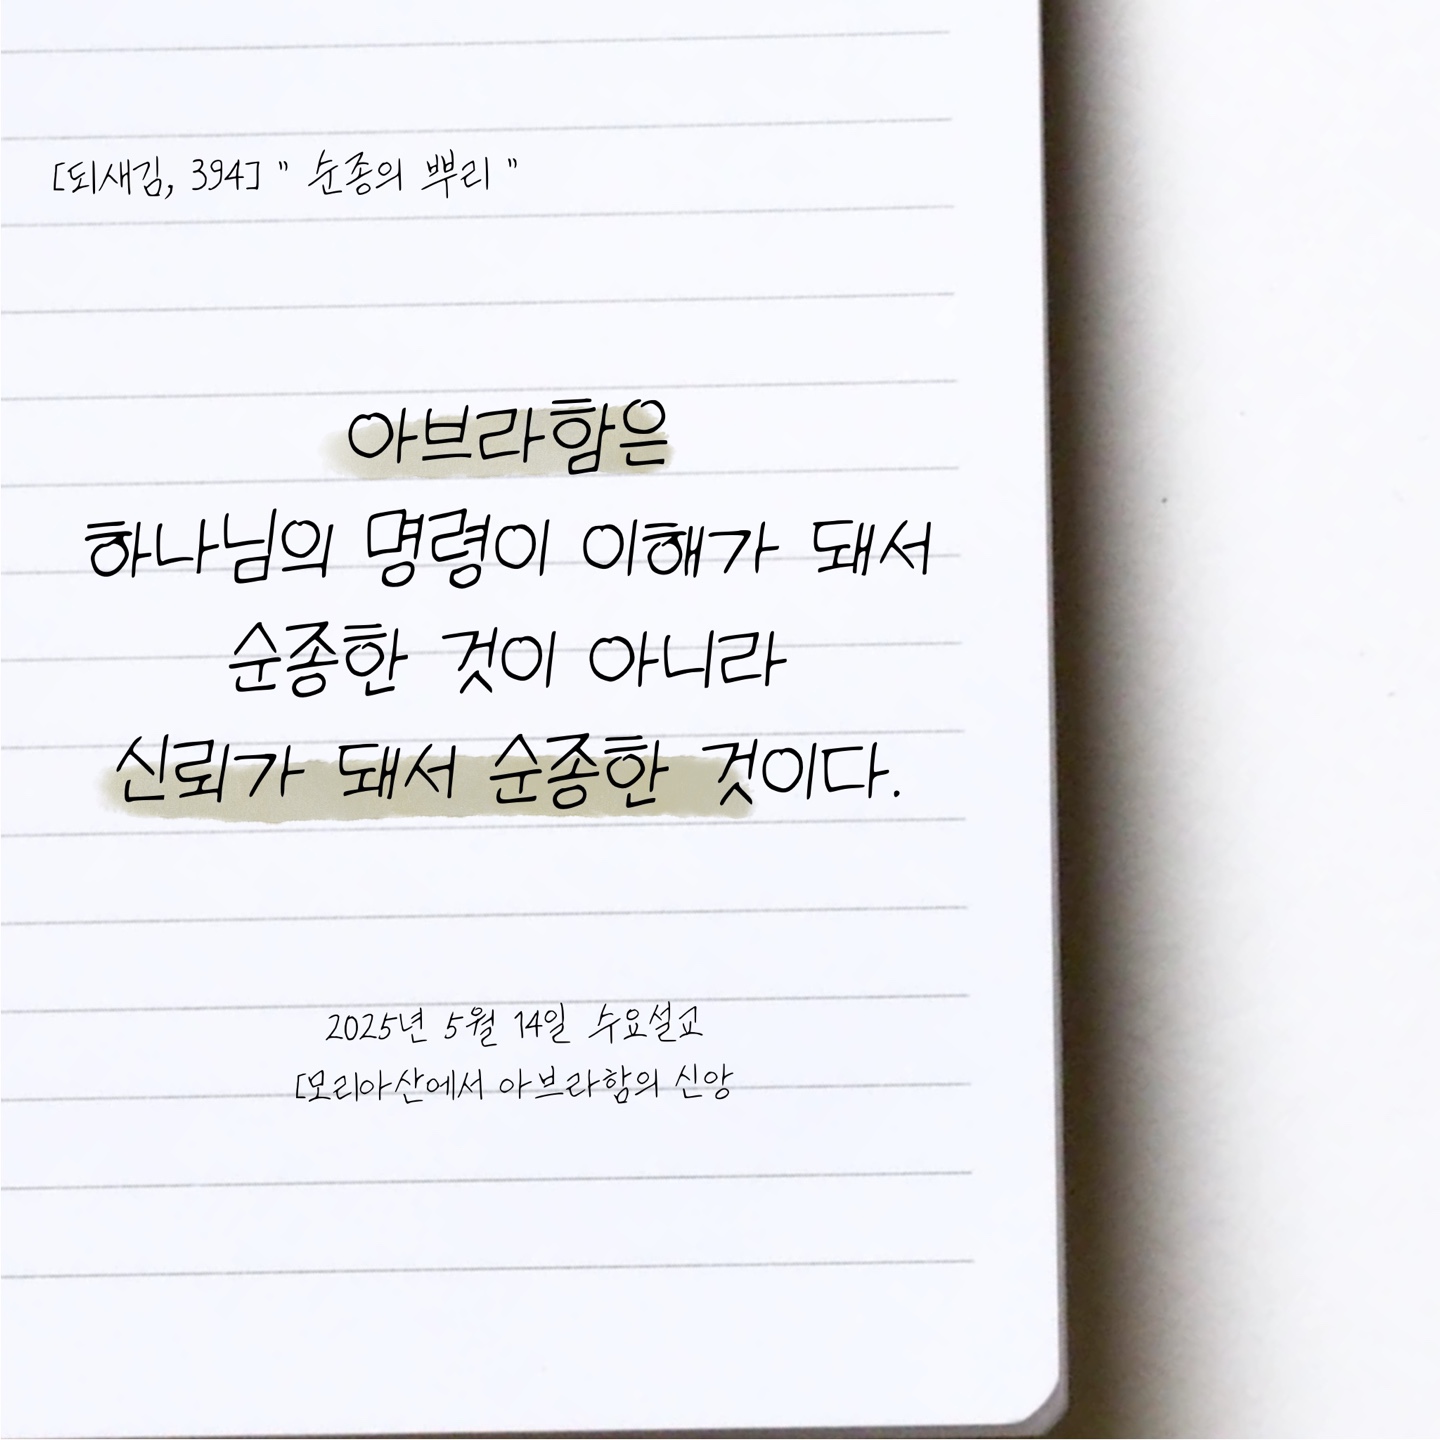 [되새김, 394] " 순종의 뿌리 "
아브라함은
하나님의 명령이 이해가 돼서
순종한 것이 아니라
신뢰가 돼서 순종한 것이다.
2025년 5월 14일 수요설교
[모리아산에서 아브라함의 신앙